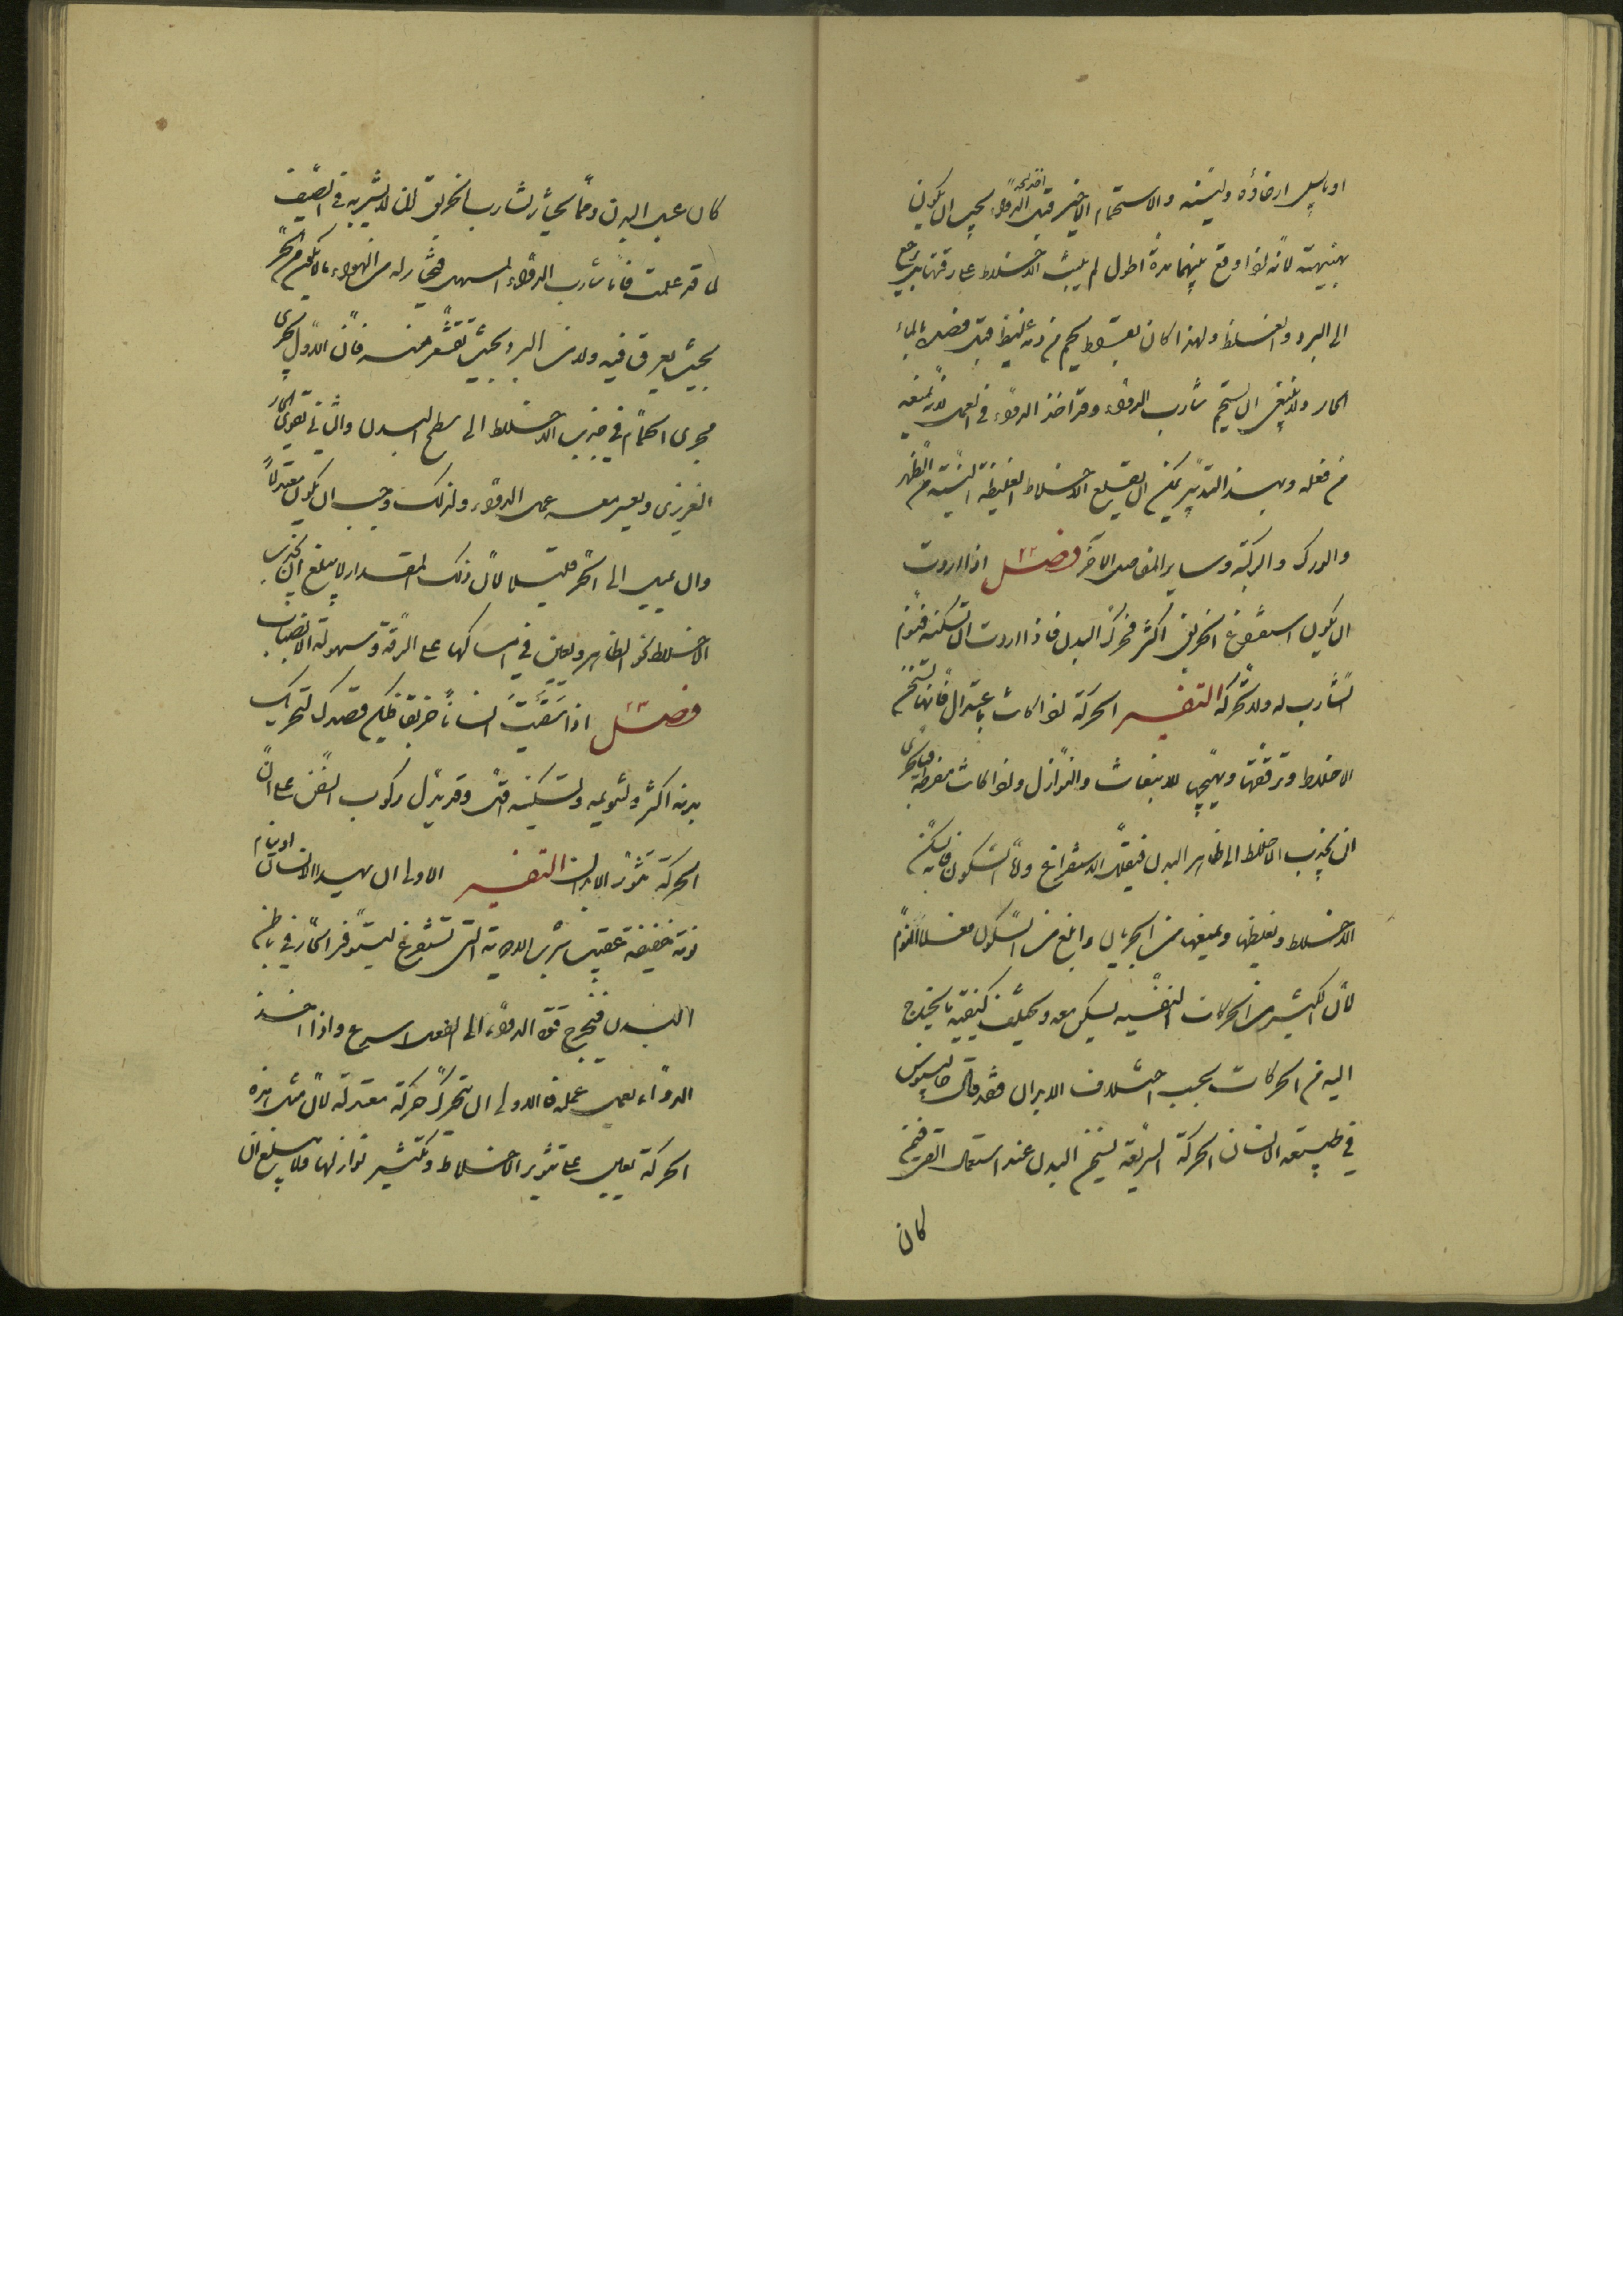 او يابس ارخاؤه وليّنه والاستحمام الاخير قبل اخذ الدواء يجب ان يكون
بهنيهة لانه لو اوقع بينهما مدة اطول لم يلبث الاخلاط على رقتها بل يرجع
الى البرد والغلظ ولهذا كان بقراط يحم من دمه غليظ قبل فصده بالماء
الحار ولا ينبغى ان يستحم شارب الدواء وقد اخذ الدواء فى العمل لانه يمنعه
من فعله وبهذا التدبير يمكن ان يقلع الاخلاط الغليظة اللبثة من الظهر
والورك والركبة وساير المفاصل الاخر فصل اذا اردت
ان يكون استفراغ الخربق اكثر فحرك البدن فاذا اردت ان تسكنه فنوّم
الشارب له ولا تحركه التفسير الحركة لو اكانت باعتدال فانها تسخن
الاخلاط وترققها وتهيجها للانبعاث والنوازل ولو اكانت مفرطة فبالحرى
ان يجذب الاخلاط الى ظاهر البدن فيقل الاستفراغ واما السكون فانه يسكن
الاخلاط ويغلظها ويمنعها من الجريان وابلغ من السكون فعلا النوم
لان الكثير من الحركات النفسية يسكن معه ويختلف كيفية ما يحتاج
اليه من الحركات بحسب اختلاف الابدان فقد قال جالينوس
فى طبيعة الانسان الحركة السريعة تسخن البدن عند استعمال القى فمن
كان
كان عبل البدن ومما يختار لشارب الخربق ان لا يشربه فى الصيف
لما قد علمت فاما شارب الدواء المسهل فيختار له من الهواء ما لا يكون من الحر
بحيث يعرق فيه ولا من البرد بحيث تقشعر منه فان الاول يجرى
مجرى الحمام فى جذب الاخلاط الى سطح البدن والثانى يقوى الحار
الغريزى ويعسر معه عمل الدواء ولذلك وجب ان يكون معتدلا
وان يميل الى الحر قليلا لان ذلك المقدار لا يبلغ ان يجذب
الاخلاط نحو الظاهر ويعين فى امساكها على الرقة وسهولة الانصباب
فصل اذا سقيت انسانا خربقا فليكن قصدك لتحريك
بدنه اكثر ولتنويمه وتسكينه اقل وقد يدل ركوب السفن على ان
الحركة تثوّر الابدان التفسير الاولى ان يهدا الانسان او ينام
نومة خفيفة عقيب شرب الادوية التى تستفرغ ليتوفر الحار فى باطن
البدن فيخرج قوة الدواء الى الفعل اسرع واذا اخذ
الدواء يعمل عمله فالاولى ان يتحرك حركة معتدلة لان مثل هذه
الحركة يعين على تثوير الاخلاط وتكثير نوازلها فلا يبلغ ان